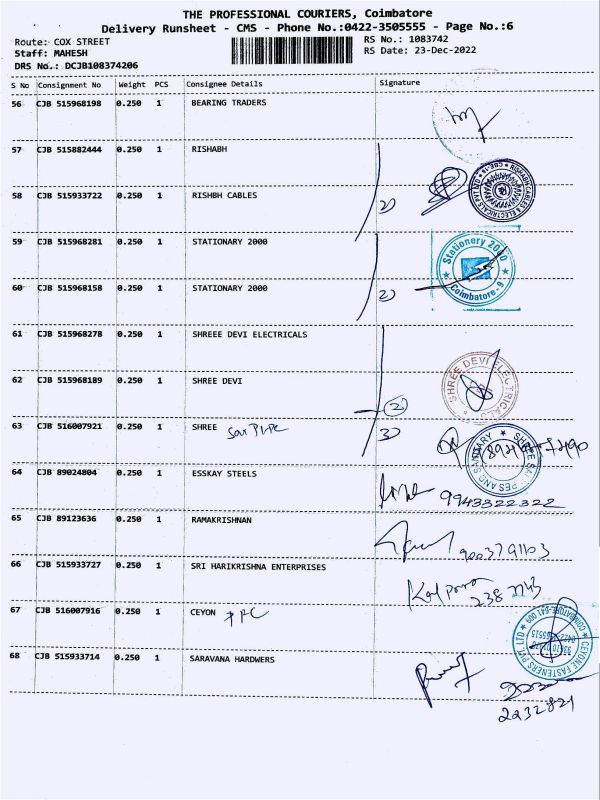 THE PROFESSIONAL COURIERS, Coimbatore
Delivery Runsheet - CMS - Phone No.:0422-3505555 - Page No.:6
Route: COX STREET RS No.: 1083742
Staff: MAHESH RS Date: 23-Dec-2022
DRS No.: DCJB108374206
S No Consignment No Weight PCS Consignee Details Signature
56 CJB 515968198 0.250 1 BEARING TRADERS
57 CJB 515882444 0.250 1 RISHABH
58 CJB 515933722 0.250 1 RISHBH CABLES 2)
RISHABH CABLES & ELECTRICALS PVT LTD
59 CJB 515968281 0.250 1 STATIONARY 2000
Stationery 2000
Coimbatore - 9
60 CJB 515968158 0.250 1 STATIONARY 2000 2)
61 CJB 515968278 0.250 1 SHREEE DEVI ELECTRICALS
62 CJB 515968189 0.250 1 SHREE DEVI 2)
SHREE DEVI ELECTRICALS
63 CJB 516007921 0.250 1 SHREE Sai PIPE 3)
64 CJB 89024804 0.250 1 ESSKAY STEELS 9943322322
65 CJB 89123636 0.250 1 RAMAKRISHNAN 9003791103
66 CJB 515933727 0.250 1 SRI HARIKRISHNA ENTERPRISES Kalpana
67 CJB 516007916 0.250 1 CEYON
CEYONE FASTENERS PVT LTD
COIMBATORE-641 009
68 CJB 515933714 0.250 1 SARAVANA HARDWERS
2232821